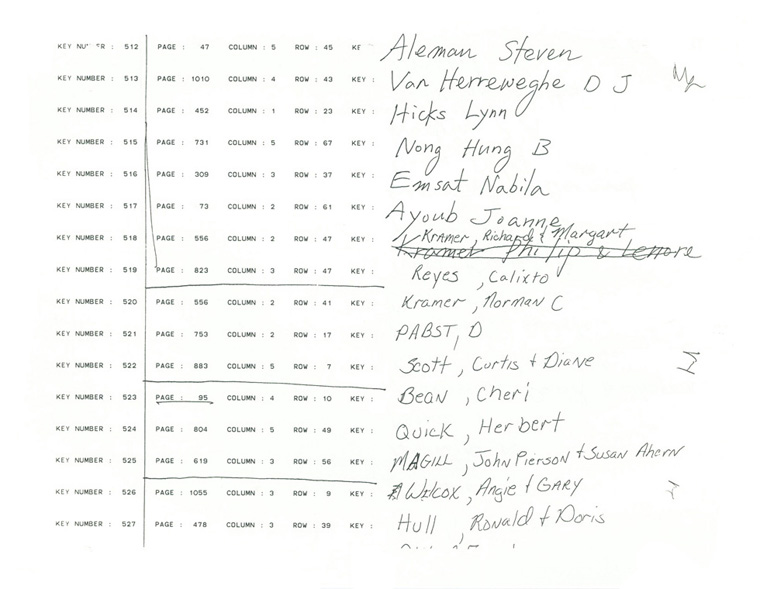 KEY NU R : 512 PAGE : 47 COLUMN : 5 ROW : 45 KE Aleman Steven
KEY NUMBER : 513 PAGE : 1010 COLUMN : 4 ROW : 43 KEY : Van Herreweghe D J
KEY NUMBER : 514 PAGE : 452 COLUMN : 1 ROW : 23 KEY : Hicks Lynn
KEY NUMBER : 515 PAGE : 731 COLUMN : 5 ROW : 67 KEY : Nong Hung B
KEY NUMBER : 516 PAGE : 309 COLUMN : 3 ROW : 37 KEY : Emsat Nabila
KEY NUMBER : 517 PAGE : 73 COLUMN : 2 ROW : 61 KEY : Ayoub Joanne
Kramer, Richard + Margart
KEY NUMBER : 518 PAGE : 556 COLUMN : 2 ROW : 47 KEY : Kramer Philip & Lenore
KEY NUMBER : 519 PAGE : 823 COLUMN : 3 ROW : 47 KEY : Reyes, Calixto
KEY NUMBER : 520 PAGE : 556 COLUMN : 2 ROW : 41 KEY : Kramer, Norman C
KEY NUMBER : 521 PAGE : 753 COLUMN : 2 ROW : 17 KEY : PABST, D
KEY NUMBER : 522 PAGE : 883 COLUMN : 5 ROW : 7 KEY : Scott, Curtis + Diane
KEY NUMBER : 523 PAGE : 95 COLUMN : 4 ROW : 10 KEY : Bean, Cheri
KEY NUMBER : 524 PAGE : 804 COLUMN : 5 ROW : 49 KEY : Quick, Herbert
KEY NUMBER : 525 PAGE : 619 COLUMN : 3 ROW : 56 KEY : MAGILL, John Pierson + Susan Ahern
KEY NUMBER : 526 PAGE : 1055 COLUMN : 3 ROW : 9 KEY : Wilcox, Angie + GARY
KEY NUMBER : 527 PAGE : 478 COLUMN : 3 ROW : 39 KEY : Hull, Ronald + Doris